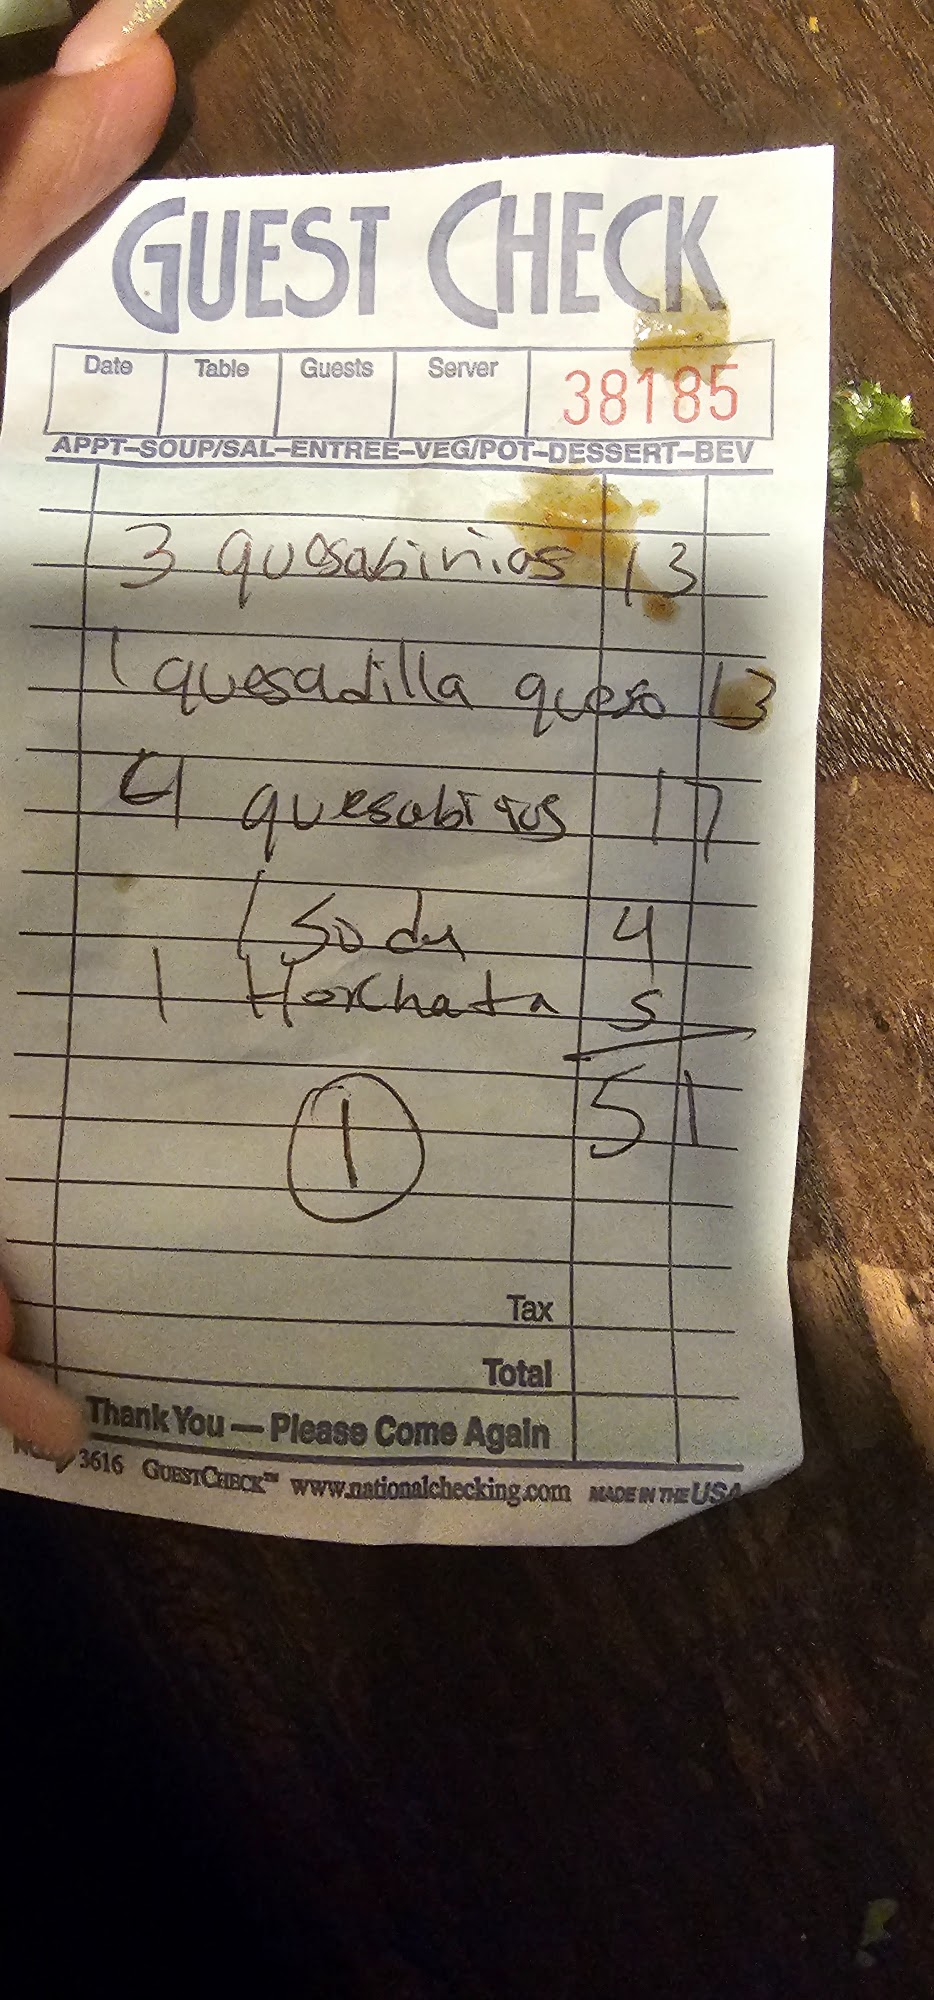 GUEST CHECK
Date Table Guests Server 38185
APPT-SOUP/SAL-ENTREE-VEG/POT-DESSERT-BEV
3 quesabirrias 13
1 quesadilla queso 13
4 quesabirrias 17
1 Soda 4
1 Horchata 5
51
1
Tax
Total
Thank You — Please Come Again
3616 GUESTCHECK™ www.nationalchecking.com MADE IN THE USA